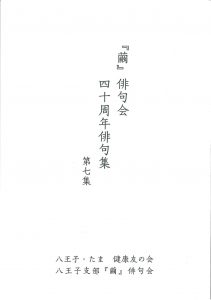 『繭』俳句会
四十周年俳句集
第七集
八王子・たま 健康友の会
八王子支部『繭』俳句会